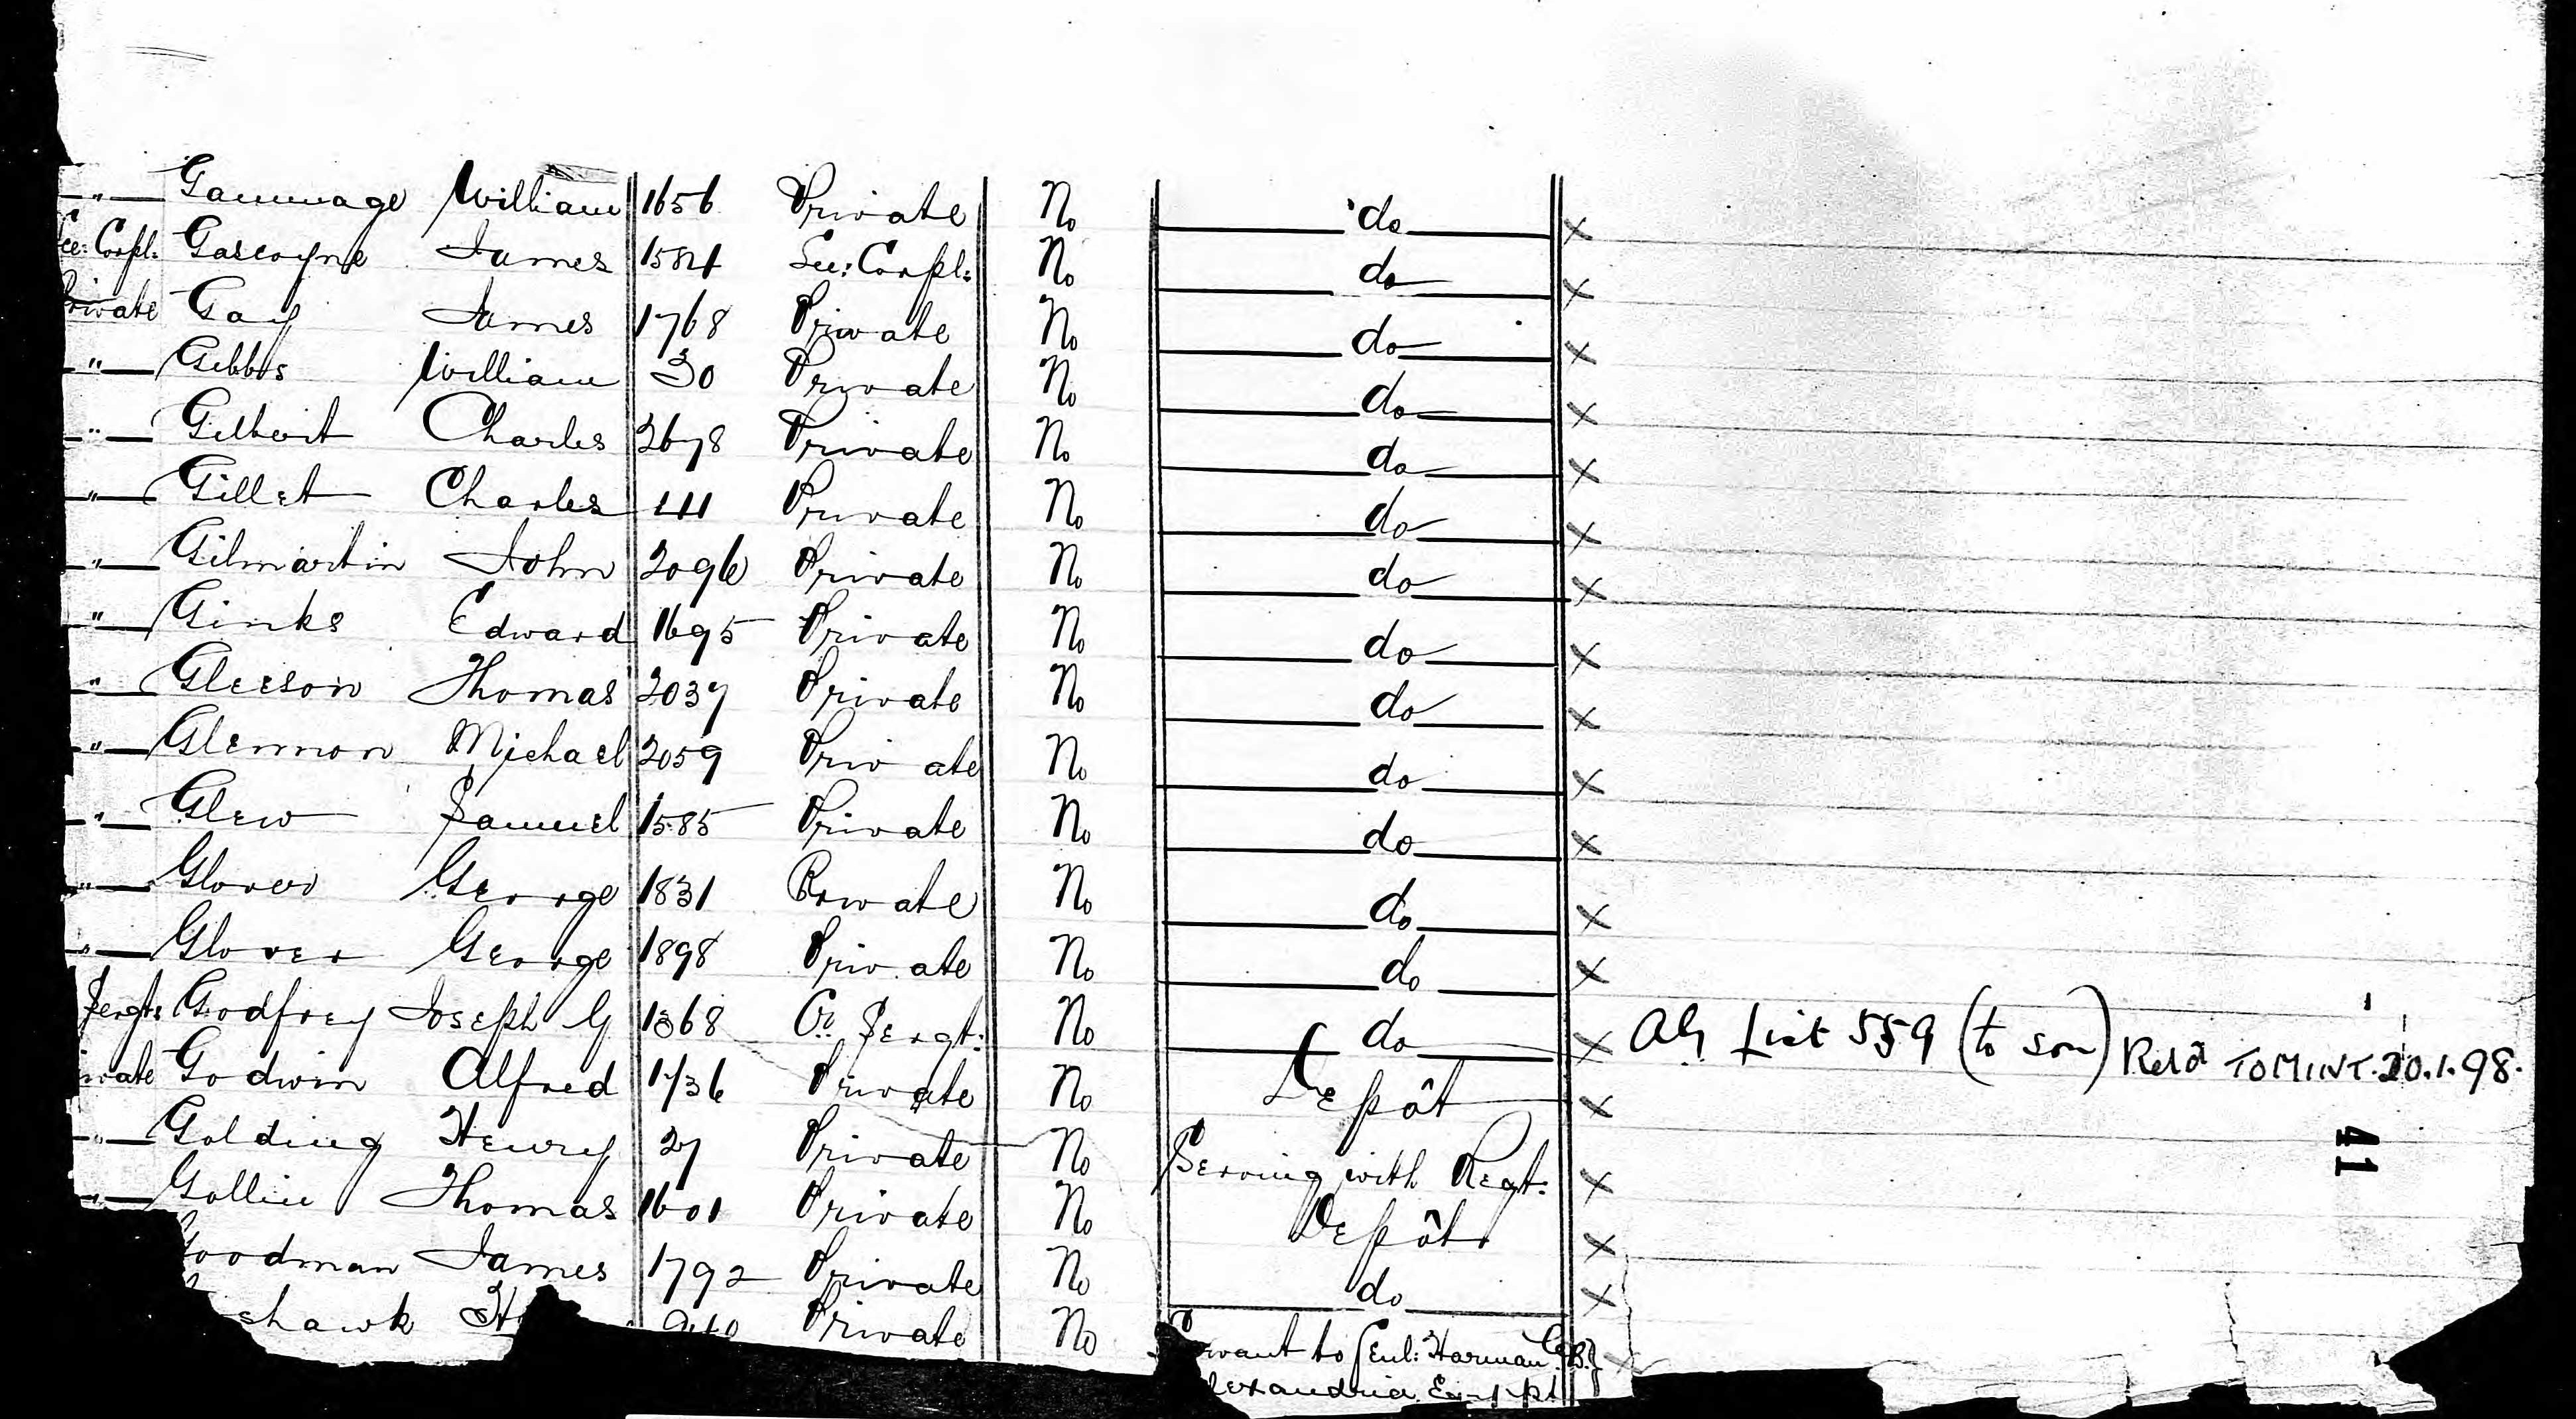 " Gammage William 1656 Private No do X
Lce: Corpl: Gascoyne James 1584 Lce: Corpl: No do X
Private Gay James 1768 Private No do X
" Gibbs William 30 Private No do X
" Gilbert Charles 2678 Private No do X
" Gillet Charles 111 Private No do X
" Gilmartin John 2096 Private No do X
" Ginks Edward 1695 Private No do X
" Gleeson Thomas 2037 Private No do X
" Glennon Michael 2059 Private No do X
" Glew Samuel 1585 Private No do X
" Glover George 1831 Private No do X
" Glover George 1898 Private No do X
Sergt: Godfrey Joseph G 1368 Cr. Sergt: No do X AG List 559 (to son) Retd TO MINT. 20.1.98.
ivate Godwin Alfred 1736 Private No Depôt X
" Golding Henry 27 Private No Serving with Regt: X
41
" Gollin Thomas 1601 Private No Depôt X
oodman James 1792 Private No do X
shawk H Private No rvant to Genl: Harman C.B. X
lexandria Egypt